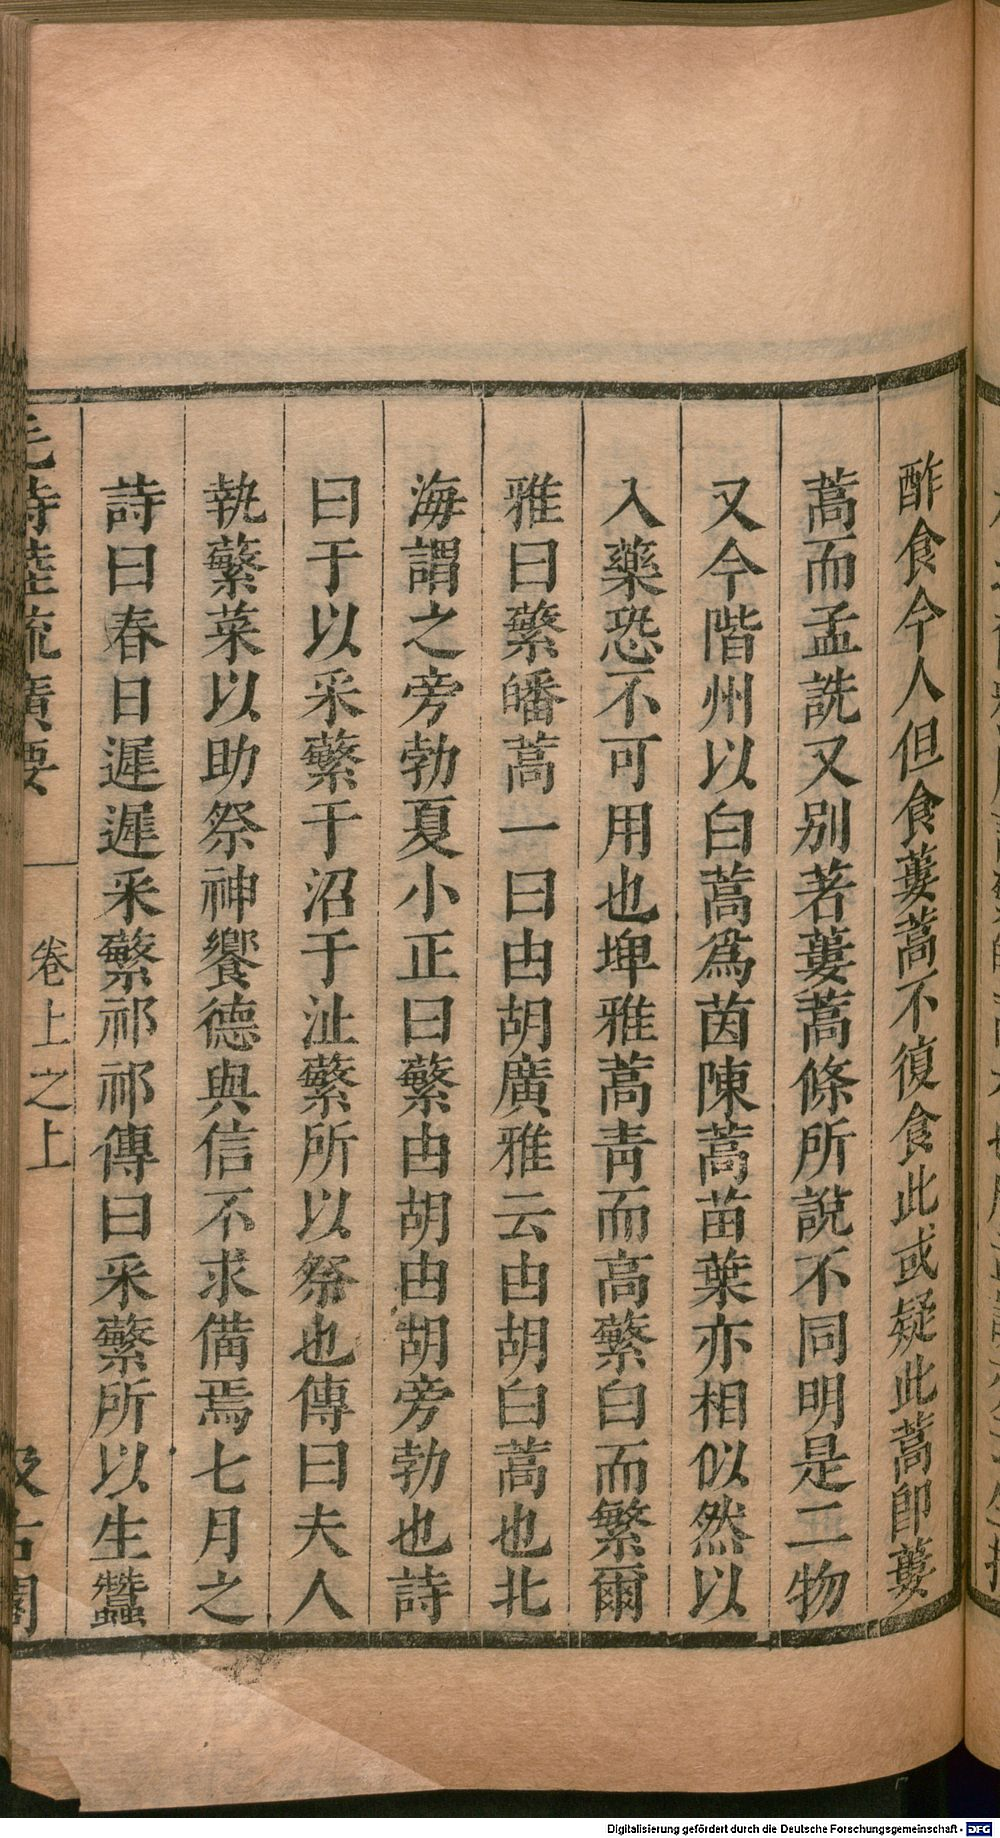 酢食今人但食蔞蒿不復食此或疑此蒿卽蔞
蒿而孟詵又別著蔞蒿條所說不同明是二物
又今階州以白蒿爲茵陳蒿苗葉亦相似然以
入藥恐不可用也埤雅蒿靑而高蘩白而繁爾
雅曰蘩皤蒿一曰由胡廣雅云由胡白蒿也北
海謂之旁勃夏小正曰蘩由胡由胡旁勃也詩
曰于以采蘩于沼于沚蘩所以祭也傳曰夫人
執蘩菜以助祭神饗德與信不求備焉七月之
詩曰春日遲遲采蘩祁祁傳曰采蘩所以生蠶
毛詩陸疏廣要
卷上之上
汲古閣
Digitalisierung gefördert durch die Deutsche Forschungsgemeinschaft - DFG